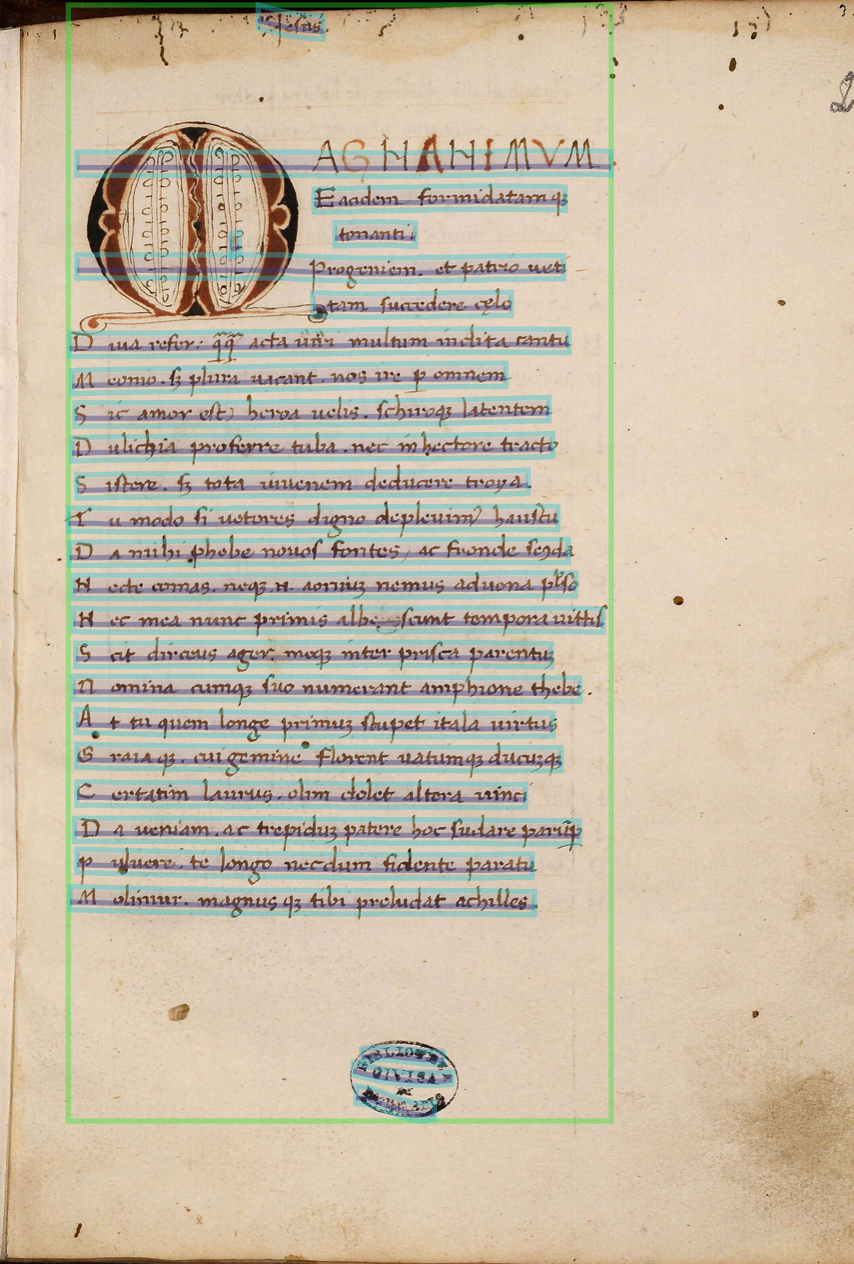 MAGNANIMVM
Eacidem formidatamq;
tonanti.
Progeniem. et patrio ueti
tam succedere cęlo
Diua refer. q̄q̄ acta uiri multum inclita cantu
Meonio. sꝫ plura uacant. nos ire ꝑ omnem
Sic amor est) heroa uelis. schiroqꝫ latentem
Dulichia proferre tuba. nec in hectore tracto
Sistere. sꝫ tota iuuenem deducere troya.
Tu modo si ueteres digno depleuimꝰ haustu
Da mihi phebe nouos fontes, ac fronde scḍa
Necte comas. neqꝫ. N. aoniuꝫ nemus aduena pl̓so
Nec mea nunc primis albescunt tempora uittis
Scit dirceus ager. meqꝫ inter prisca parentuꝫ
Nomina cumqꝫ suo numerant amphione thebe.
At tu quem longe primuꝫ stupet itala uirtus
Graiaqꝫ. cui gemine florent uatumqꝫ ducuꝫqꝫ
Certatim laurus. olim dolet altera uinci
Da ueniam. ac trepiduꝫ patere hoc sudare parūꝑ
Puluere. te longo necdum fidente paratu
Molimur. magnusqꝫ tibi preludat achilles.